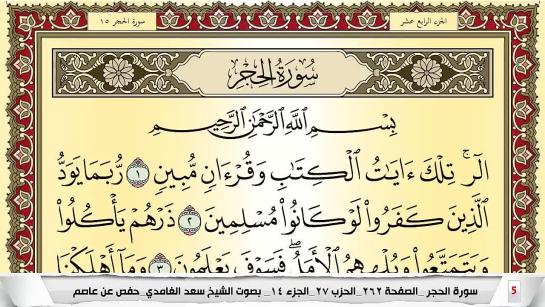 الجزء الرابع عشر
سورة الحجر ١٥
سُورَةُ الحِجْرِ
بِسْمِ اللَّهِ الرَّحْمَٰنِ الرَّحِيمِ
الٓر ۚ تِلْكَ ءَايَٰتُ ٱلْكِتَٰبِ وَقُرْءَانٍ مُّبِينٍ ١ رُّبَمَا يَوَدُّ
ٱلَّذِينَ كَفَرُوا۟ لَوْ كَانُوا۟ مُسْلِمِينَ ٢ ذَرْهُمْ يَأْكُلُوا۟
وَيَتَمَتَّعُوا۟ وَيُلْهِهِمُ ٱلْأَمَلُ ۖ فَسَوْفَ يَعْلَمُونَ ٣ وَمَآ أَهْلَكْنَا
5 سورة الحجر_الصفحة ٢٦٢_الحزب ٢٧_الجزء ١٤_ بصوت الشيخ سعد الغامدي_حفص عن عاصم